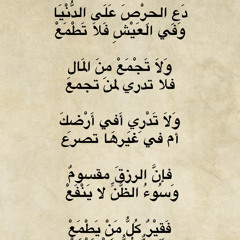 دَعِ الحرْصَ عَلَى الدُّنْيَا
وَفي العَيْشِ فَلاَ تَطْمَعْ
وَلاَ تَجْمَعْ منَ المَالِ
فلا تدري لمنْ تجمعْ
وَلاَ تَدْرِي أَفي أَرْضكَ
أم في غَيرهَا تصرَعْ
فإنَّ الرزقَ مقسومٌ
وَسُوءُ الظَّنِّ لا يَنْفَعْ
فَقِيْرٌ كُلُّ مَنْ يَطْمَعْ